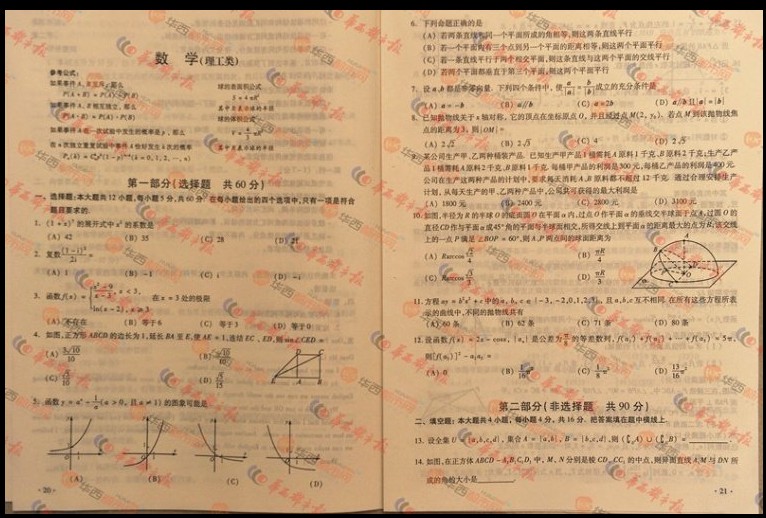 数 学(理工类)
参考公式:
如果事件 A、B 互斥,那么
球的表面积公式
P(A+B)=P(A)+P(B)
S=4πR²
如果事件 A、B 相互独立,那么
其中 R 表示球的半径
P(A·B)=P(A)·P(B)
球的体积公式
如果事件 A 在一次试验中发生的概率是 p,那么
V=4/3 πR³
在 n 次独立重复试验中事件 A 恰好发生 k 次的概率
其中 R 表示球的半径
第一部分(选择题 共 60 分)
一、选择题:本大题共 12 小题,每小题 5 分,共 60 分. 在每小题给出的四个选项中,只有一项是符合
题目要求的.
1. (1+x)⁷ 的展开式中 x² 的系数是
(A) 42 (B) 35 (C) 28 (D) 21
2. 复数 (1-i)²/2i =
(A) 1 (B) -1 (C) i (D) -i
3. 函数 f(x) = 在 x=3 处的极限
ln(x-2), x≥3
(A) 不存在 (B) 等于 6 (C) 等于 3 (D) 等于 0
4. 如图,正方形 ABCD 的边长为 1,延长 BA 至 E,使 AE=1,连结 EC、ED,则 sin∠CED =
(A) 3√10/10 (B) √10/10
(C) √5/10 (D) √5/15
5. 函数 y=aˣ-1/a (a>0,且 a≠1) 的图象可能是
(A) (B) (C) (D)
·20·
6. 下列命题正确的是
(A) 若两条直线和同一个平面所成的角相等,则这两条直线平行
(B) 若一个平面内有三个点到另一个平面的距离相等,则这两个平面平行
(C) 若一条直线平行于两个相交平面,则这条直线与这两个平面的交线平行
(D) 若两个平面都垂直于第三个平面,则这两个平面平行
7. 设 a、b 都是非零向量. 下列四个条件中,使 a/|a| = b/|b| 成立的充分条件是
(A) a=-b (B) a∥b (C) a=2b (D) a∥b 且 |a|=|b|
8. 已知抛物线关于 x 轴对称,它的顶点在坐标原点 O,并且经过点 M(2, y₀). 若点 M 到该抛物线焦
点的距离为 3,则 |OM| =
(A) 2√2 (B) 2√3 (C) 4 (D) 2√5
9. 某公司生产甲、乙两种桶装产品. 已知生产甲产品 1 桶需耗 A 原料 1 千克、B 原料 2 千克;生产乙产
品 1 桶需耗 A 原料 2 千克、B 原料 1 千克. 每桶甲产品的利润是 300 元,每桶乙产品的利润是 400 元.
公司在生产这两种产品的计划中,要求每天消耗 A、B 原料都不超过 12 千克. 通过合理安排生产
计划,从每天生产的甲、乙两种产品中,公司共可获得的最大利润是
(A) 1800 元 (B) 2400 元 (C) 2800 元 (D) 3100 元
10. 如图,半径为 R 的半球 O 的底面圆 O 在平面 α 内,过点 O 作平面 α 的垂线交半球面于点 A,过圆 O 的
直径 CD 作与平面 α 成 45° 角的平面与半球面相交,所得交线上到平面 α 的距离最大的点为 B,该交线
上的一点 P 满足 ∠BOP=60°,则 A、P 两点间的球面距离为
(A) Rarccos √2/4 (B) πR/4
(C) Rarccos √3/3 (D) πR/3
11. 方程 ay=b²x²+c 中的 a,b,c∈{-3,-2,0,1,2,3},且 a,b,c 互不相同. 在所有这些方程所表
示的曲线中,不同的抛物线共有
(A) 60 条 (B) 62 条 (C) 71 条 (D) 80 条
12. 设函数 f(x)=2x-cosx,{aₙ} 是公差为 π/8 的等差数列,f(a₁)+f(a₂)+…+f(a₅)=5π,
则 [f(a₃)]²-a₁a₅ =
(A) 0 (B) 1/16 π² (C) 1/8 π² (D) 13/16 π²
第二部分(非选择题 共 90 分)
二、填空题:本大题共 4 小题,每小题 4 分,共 16 分. 把答案填在题中横线上.
13. 设全集 U={a,b,c,d},集合 A={a,b},B={b,c,d},则 (∁ᵤA)∪(∁ᵤB) =
14. 如图,在正方体 ABCD-A₁B₁C₁D₁ 中,M、N 分别是棱 CD、CC₁ 的中点,则异面直线 A₁M 与 DN 所
成的角的大小是
·21·